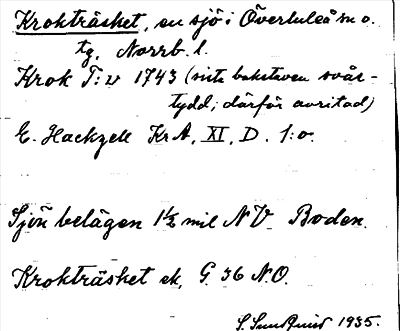 Krokträsket, en sjö i Överluleå sn o.
tg, Norrb. l.
Krok T:v 1743 (sista bokstaven svår-
tydd; därför avritad)
E. Hackzell KrA, XI, D. 1:o.
Sjön belägen 1½ mil NV Boden.
Krokträsket ek, G. 36 N.O.
S. Sundqvist 1935.